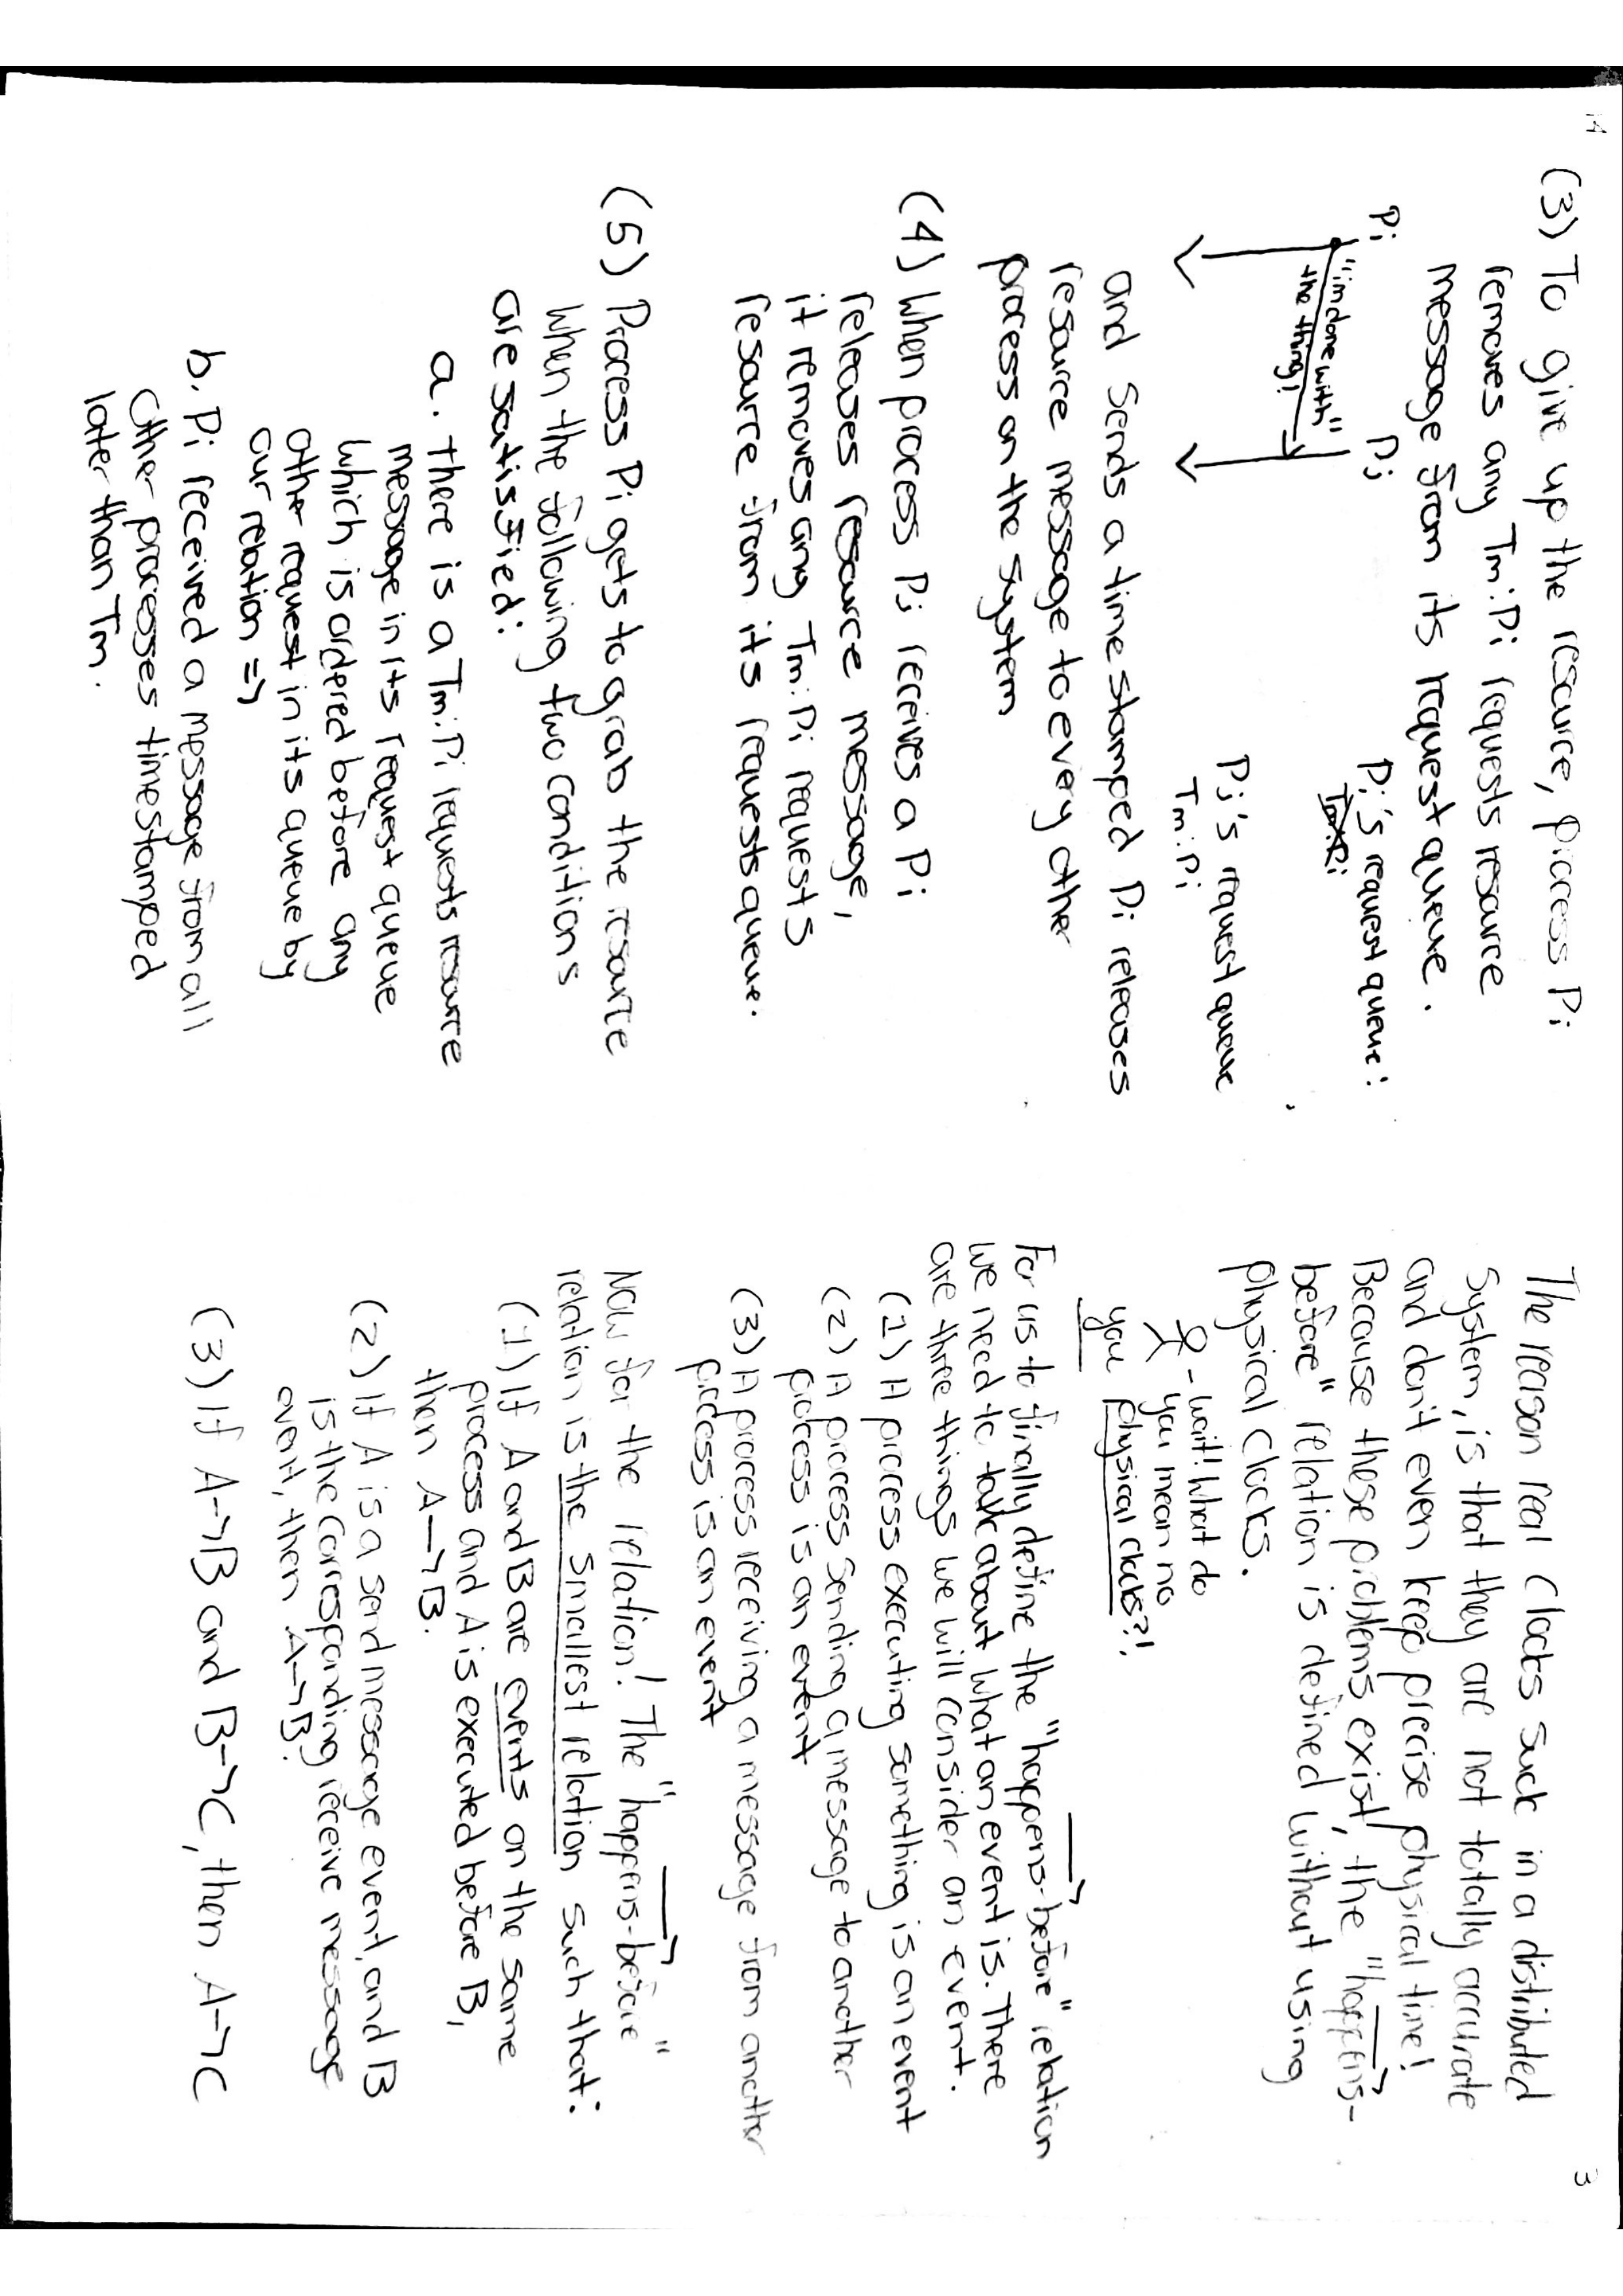 14
(3) To give up the resource, process Pi
removes any Tm:Pi requests resource
message from its request queue.
Pi
Pj
"im done with"
the thing!
Pi's request queue:
Tm:Pi
Pj's request queue
Tm:Pi
and sends a timestamped Pi releases
resource message to every other
process on the system
(4) When process Pj receives a Pi
releases resource message,
it removes any Tm:Pi requests
resource from its requests queue.
(5) Process Pi gets to grab the resource
when the following two conditions
are satisfied:
a. there is a Tm:Pi requests resource
message in its request queue
which is ordered before any
other request in its queue by
our relation =>
b. Pi received a message from all
other processes timestamped
later than Tm.
3
The reason real clocks suck in a distributed
system, is that they are not totally accurate
and don't even keep precise physical time!
Because these problems exist, the "happens-
before" relation is defined without using
physical clocks.
- wait! what do
you mean no
you physical clocks?!
For us to finally define the "happens-before" relation
we need to talk about what an event is. There
are three things we will consider an event.
(1) A process executing something is an event
(2) A process sending a message to another
process is an event
(3) A process receiving a message from another
process is an event
Now for the relation! The "happens-before"
relation is the smallest relation such that:
(1) If A and B are events on the same
process and A is executed before B,
then A→B.
(2) If A is a send message event, and B
is the corresponding receive message
event, then A→B.
(3) If A→B and B→C, then A→C